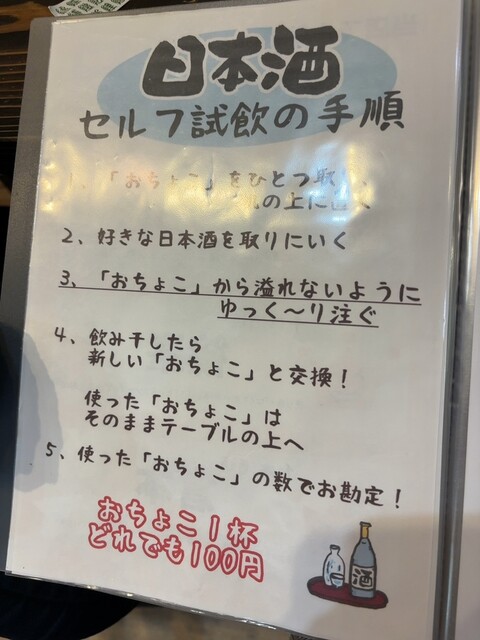 日本酒
セルフ試飲の手順
1、「おちょこ」をひとつ取り、
の上に置く
2、好きな日本酒を取りにいく
3、「おちょこ」から溢れないように
ゆっく～り注ぐ
4、飲み干したら
新しい「おちょこ」と交換！
使った「おちょこ」は
そのままテーブルの上へ
5、使った「おちょこ」の数でお勘定！
おちょこ1杯
どれでも100円
酒